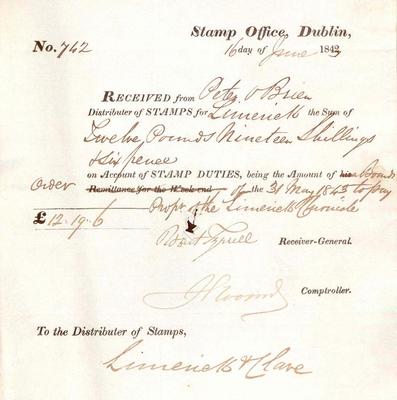 Stamp Office, Dublin,
No. 742
16 day of June 1843
RECEIVED from Peter O'Brien
Distributer of STAMPS for Limerick the Sum of
Twelve Pounds Nineteen Shillings
& six pence
on Account of STAMP DUTIES, being the Amount of his Boards
order Remittance for the Week end of the 31 May 1843 to pay
£12-19-6 Propr of the Limerick Chronicle
Tyrrell Receiver-General.
Comptroller.
To the Distributer of Stamps,
Limerick & Clare